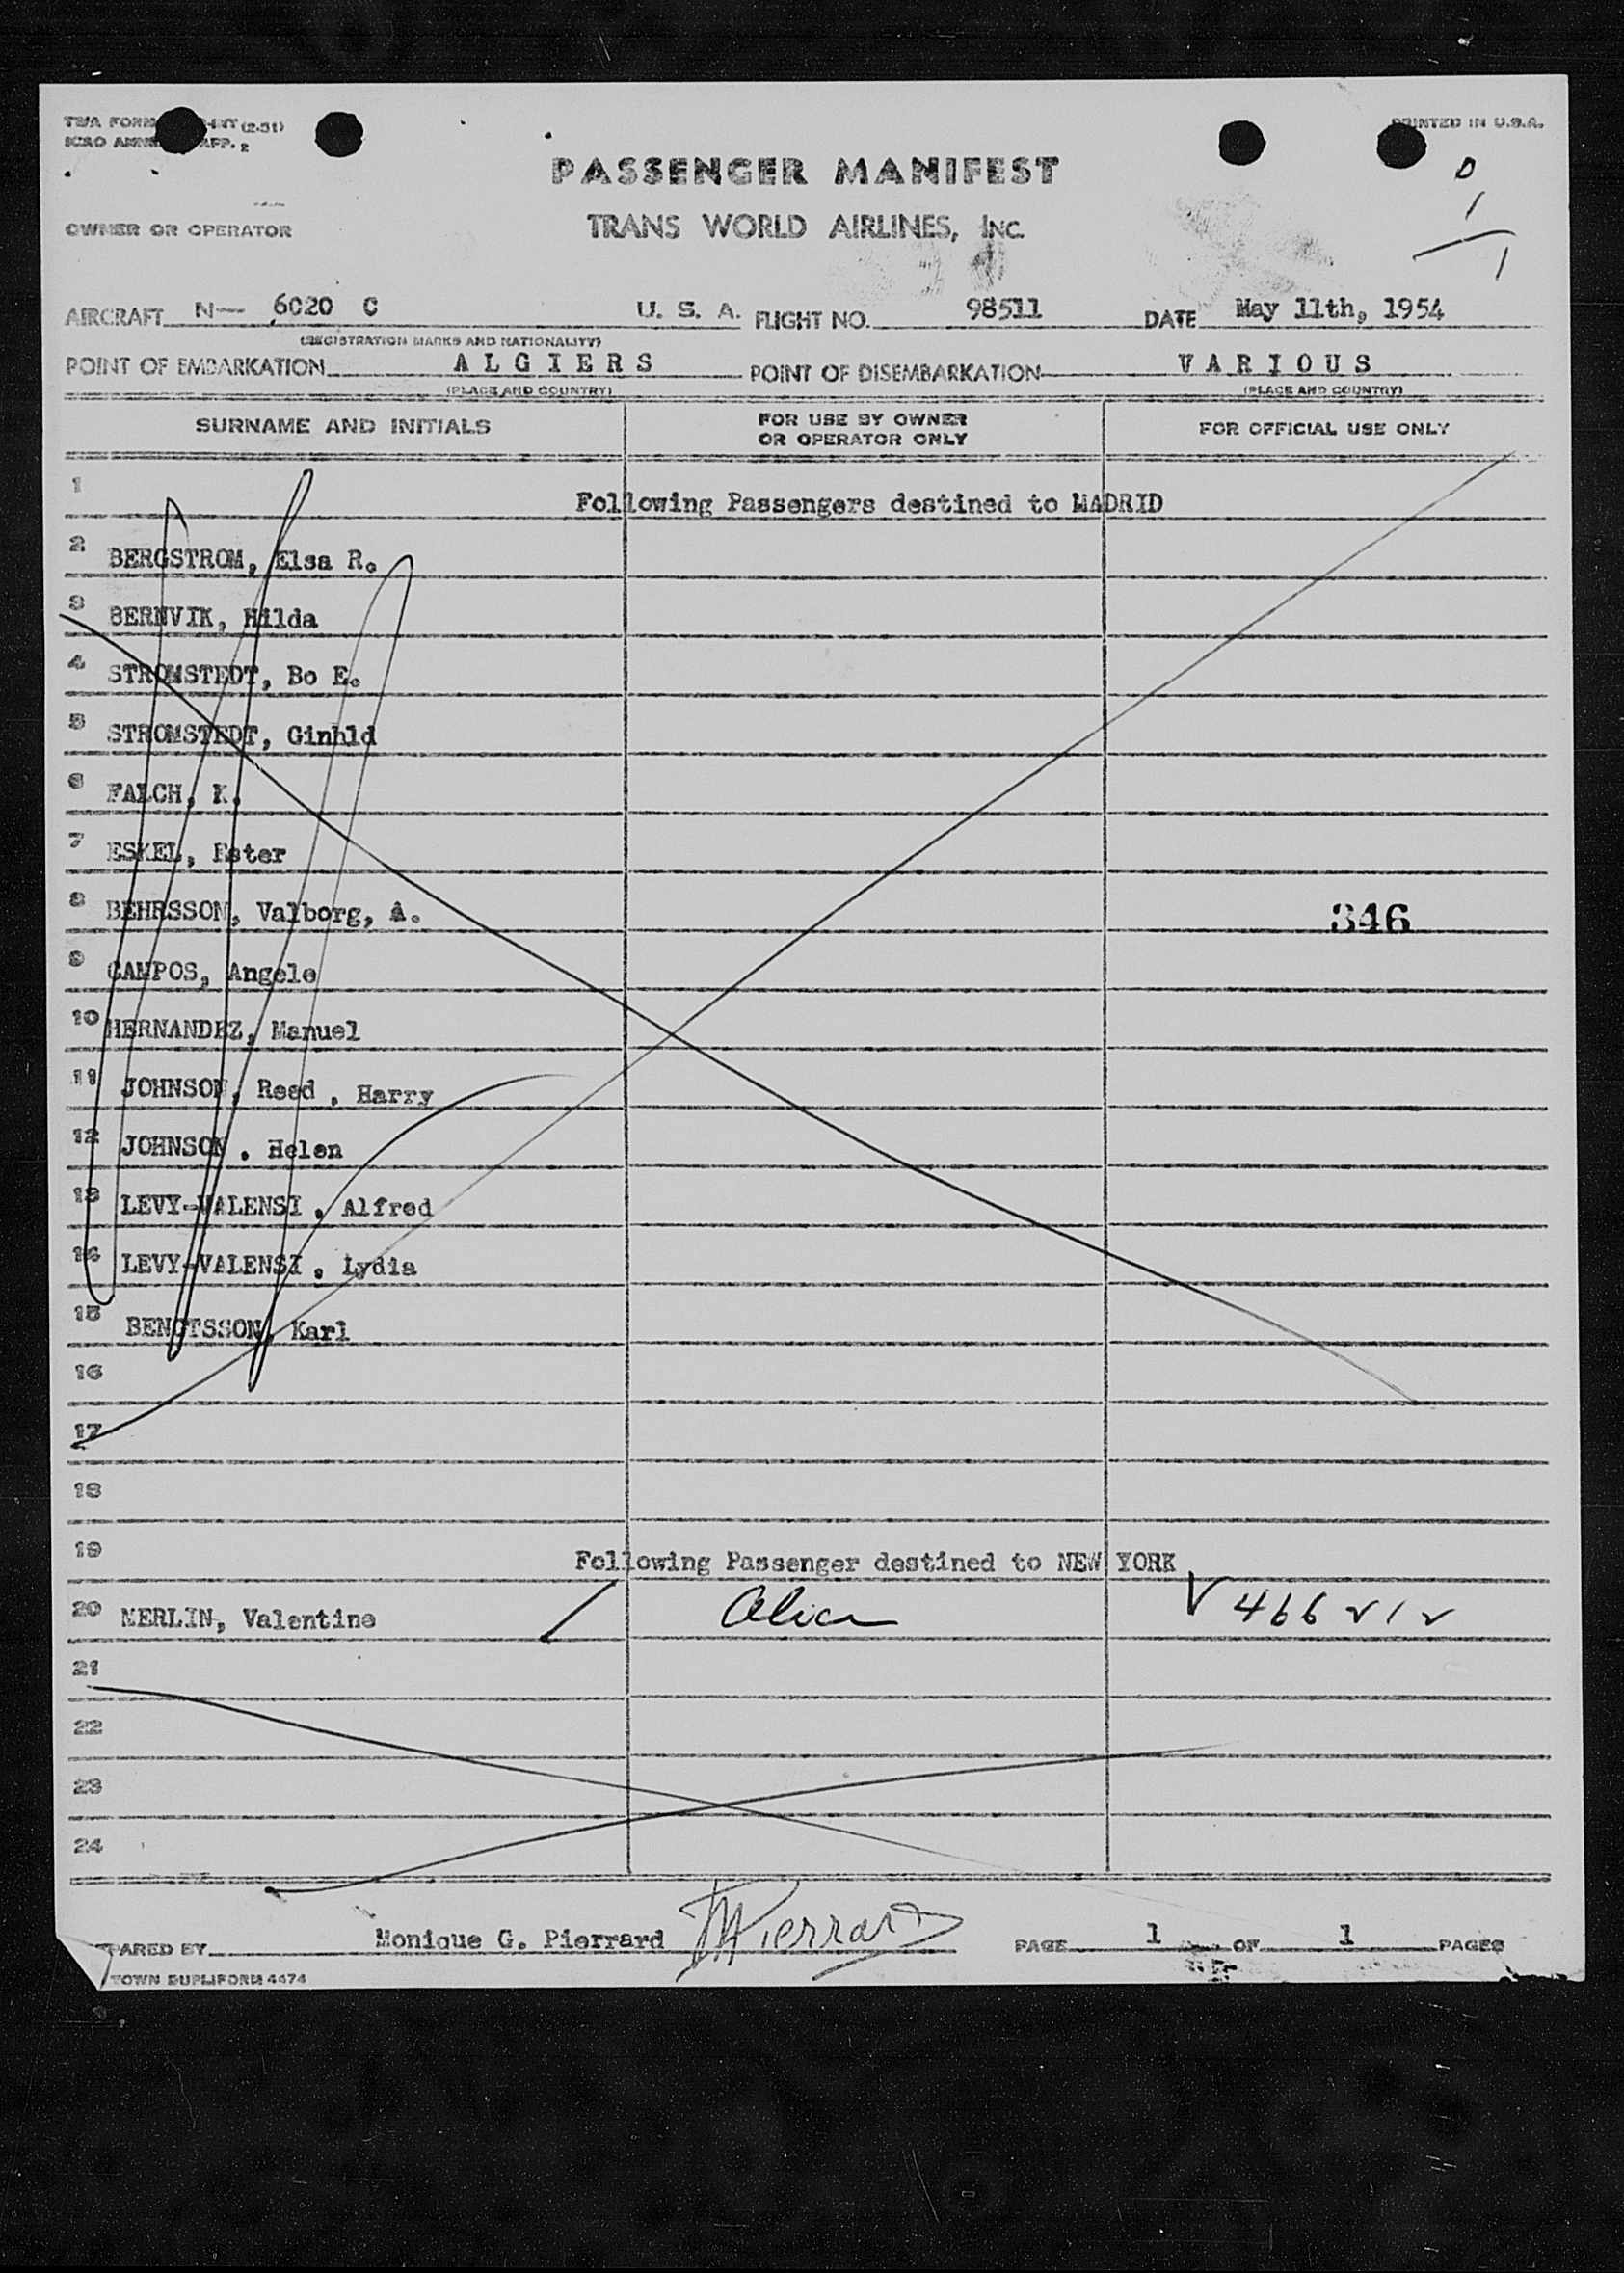 TWA FORM INT (2-51)
ICAO ANNEX APP. 2
PRINTED IN U.S.A.
PASSENGER MANIFEST
0
1
1
OWNER OR OPERATOR
TRANS WORLD AIRLINES, INC.
AIRCRAFT N— 6020 C U. S. A. FLIGHT NO. 98511 DATE May 11th, 1954
(REGISTRATION MARKS AND NATIONALITY)
POINT OF EMBARKATION ALGIERS POINT OF DISEMBARKATION VARIOUS
(PLACE AND COUNTRY) (PLACE AND COUNTRY)
SURNAME AND INITIALS FOR USE BY OWNER OR OPERATOR ONLY FOR OFFICIAL USE ONLY
1 Following Passengers destined to MADRID
2 BERGSTROM, Elsa R.
3 BERNVIK, Hilda
4 STROMSTEDT, Bo E.
5 STROMSTEDT, Ginhld
6 FALCH, K.
7 ESKEL, Ester
8 BEHRSSON, Valborg, A. 346
9 CAMPOS, Angele
10 HERNANDEZ, Manuel
11 JOHNSON, Reed , Harry
12 JOHNSON . Helen
13 LEVY-VALENSI , Alfred
14 LEVY-VALENSI , Lydia
15 BENGTSSON, Karl
16
17
18
19 Following Passenger destined to NEW YORK
20 MERLIN, Valentine / Alien √ 466 212
21
22
23
24
PARED BY Monique G. Pierrard MPierrard PAGE 1 OF 1 PAGES
TOWN DUPLIFORM 4474